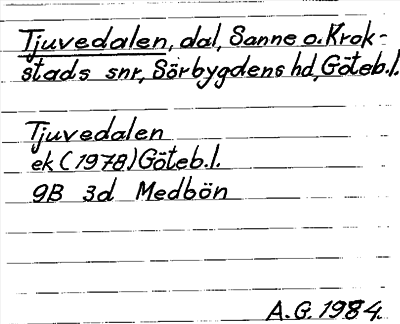 Tjuvedalen, dal, Sanne o. Krok-
stads snr, Sörbygdens hd, Göteb.l.
Tjuvedalen
ek (1978) Göteb.l.
9B 3d Medbön
A.G. 1984.